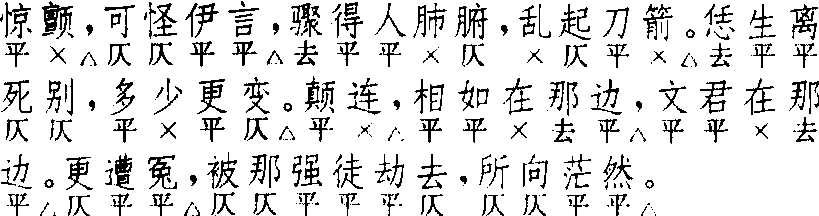 惊颤，可怪伊言，骤得人肺腑，乱起刀箭。恁生离
平×△仄仄平平△去平平×仄×仄平×△去平平
死别，多少更变。颠连，相如在那边，文君在那
仄仄平×平仄△平×△平平×去平△平平×去
边。更遭冤，被那强徒劫去，所向茫然。
平△仄平平△仄仄平平仄仄仄平平△